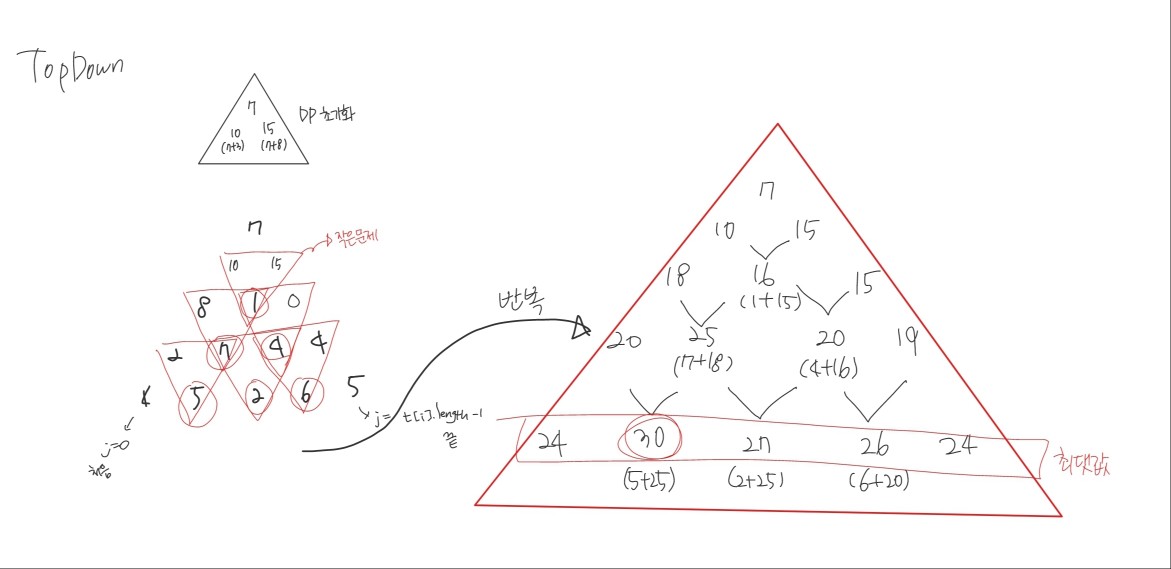 TopDown
7
DP 초기화
10 15
(7+3) (7+8)
7
작은문제
10 15
8 1 0
2 7 4 4
5 2 6 5
j=0
처음
j= t[i].length-1
끝
반복
7
10 15
18 16 15
(1+15)
20 25 20 19
(7+18) (4+16)
24 30 27 26 24
(5+25) (2+25) (6+20)
최댓값